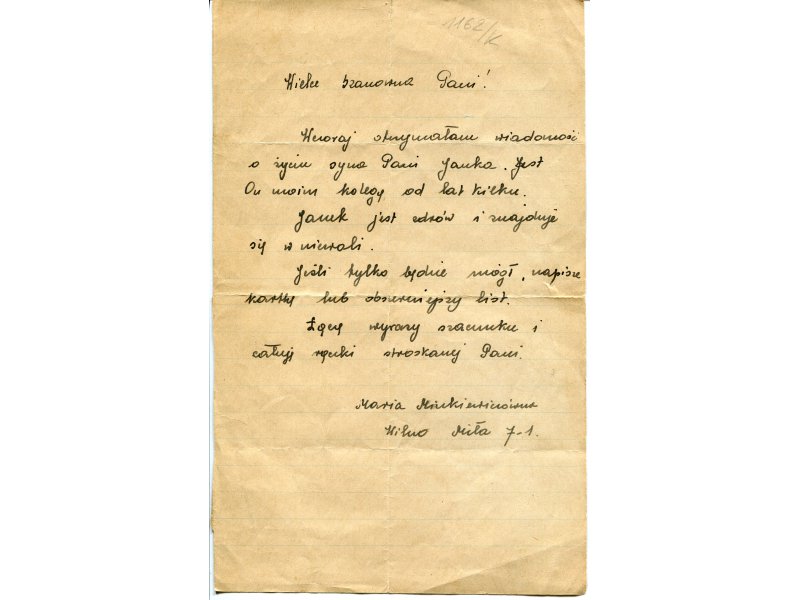 1162/K
Wielce Szanowna Pani!
Wczoraj otrzymałam wiadomość
o życiu syna Pani Janka. Jest
On moim kolegą od lat kilku.
Janek jest zdrów i znajduje
się w niewoli.
Jeśli tylko będzie mógł, napisze
kartkę lub obszerniejszy list.
Łączę wyrazy szacunku i
całuję rączki stroskanej Pani.
Maria
Wilno Miła 7-1.